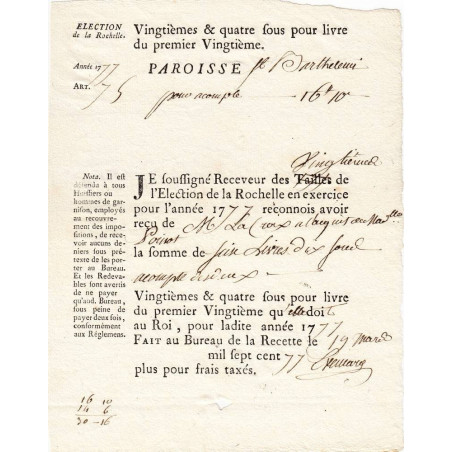 ELECTION
de la Rochelle.
Vingtièmes & quatre sous pour livre
du premier Vingtième.
Année 1777
PAROISSE St Barthelemi
ART. 75
pour acompte 16# 10s
Nota. Il est
défendu à tous
Huissiers ou
hommes de gar-
nison, employés
au recouvre-
ment des impo-
sitions, de rece-
voir aucuns de-
niers sous pré-
texte de les por-
ter au Bureau.
Et les Redeva-
bles sont avertis
de ne payer
qu'aud. Bureau,
sous peine de
payer deux fois,
conformément
aux Réglemens.
Vingtièmes
JE soussigné Receveur des Tailles de
l'Election de la Rochelle en exercice
pour l'année 1777 reconnois avoir
reçu de M. La Croix
la somme de seize Livres dix sous
acompte
Vingtièmes & quatre sous pour livre
du premier Vingtième qu'elle doit
au Roi, pour ladite année 1777
FAIT au Bureau de la Recette le 19 mars
mil sept cent 77
plus pour frais taxés.
16 10
14 6
30 - 16